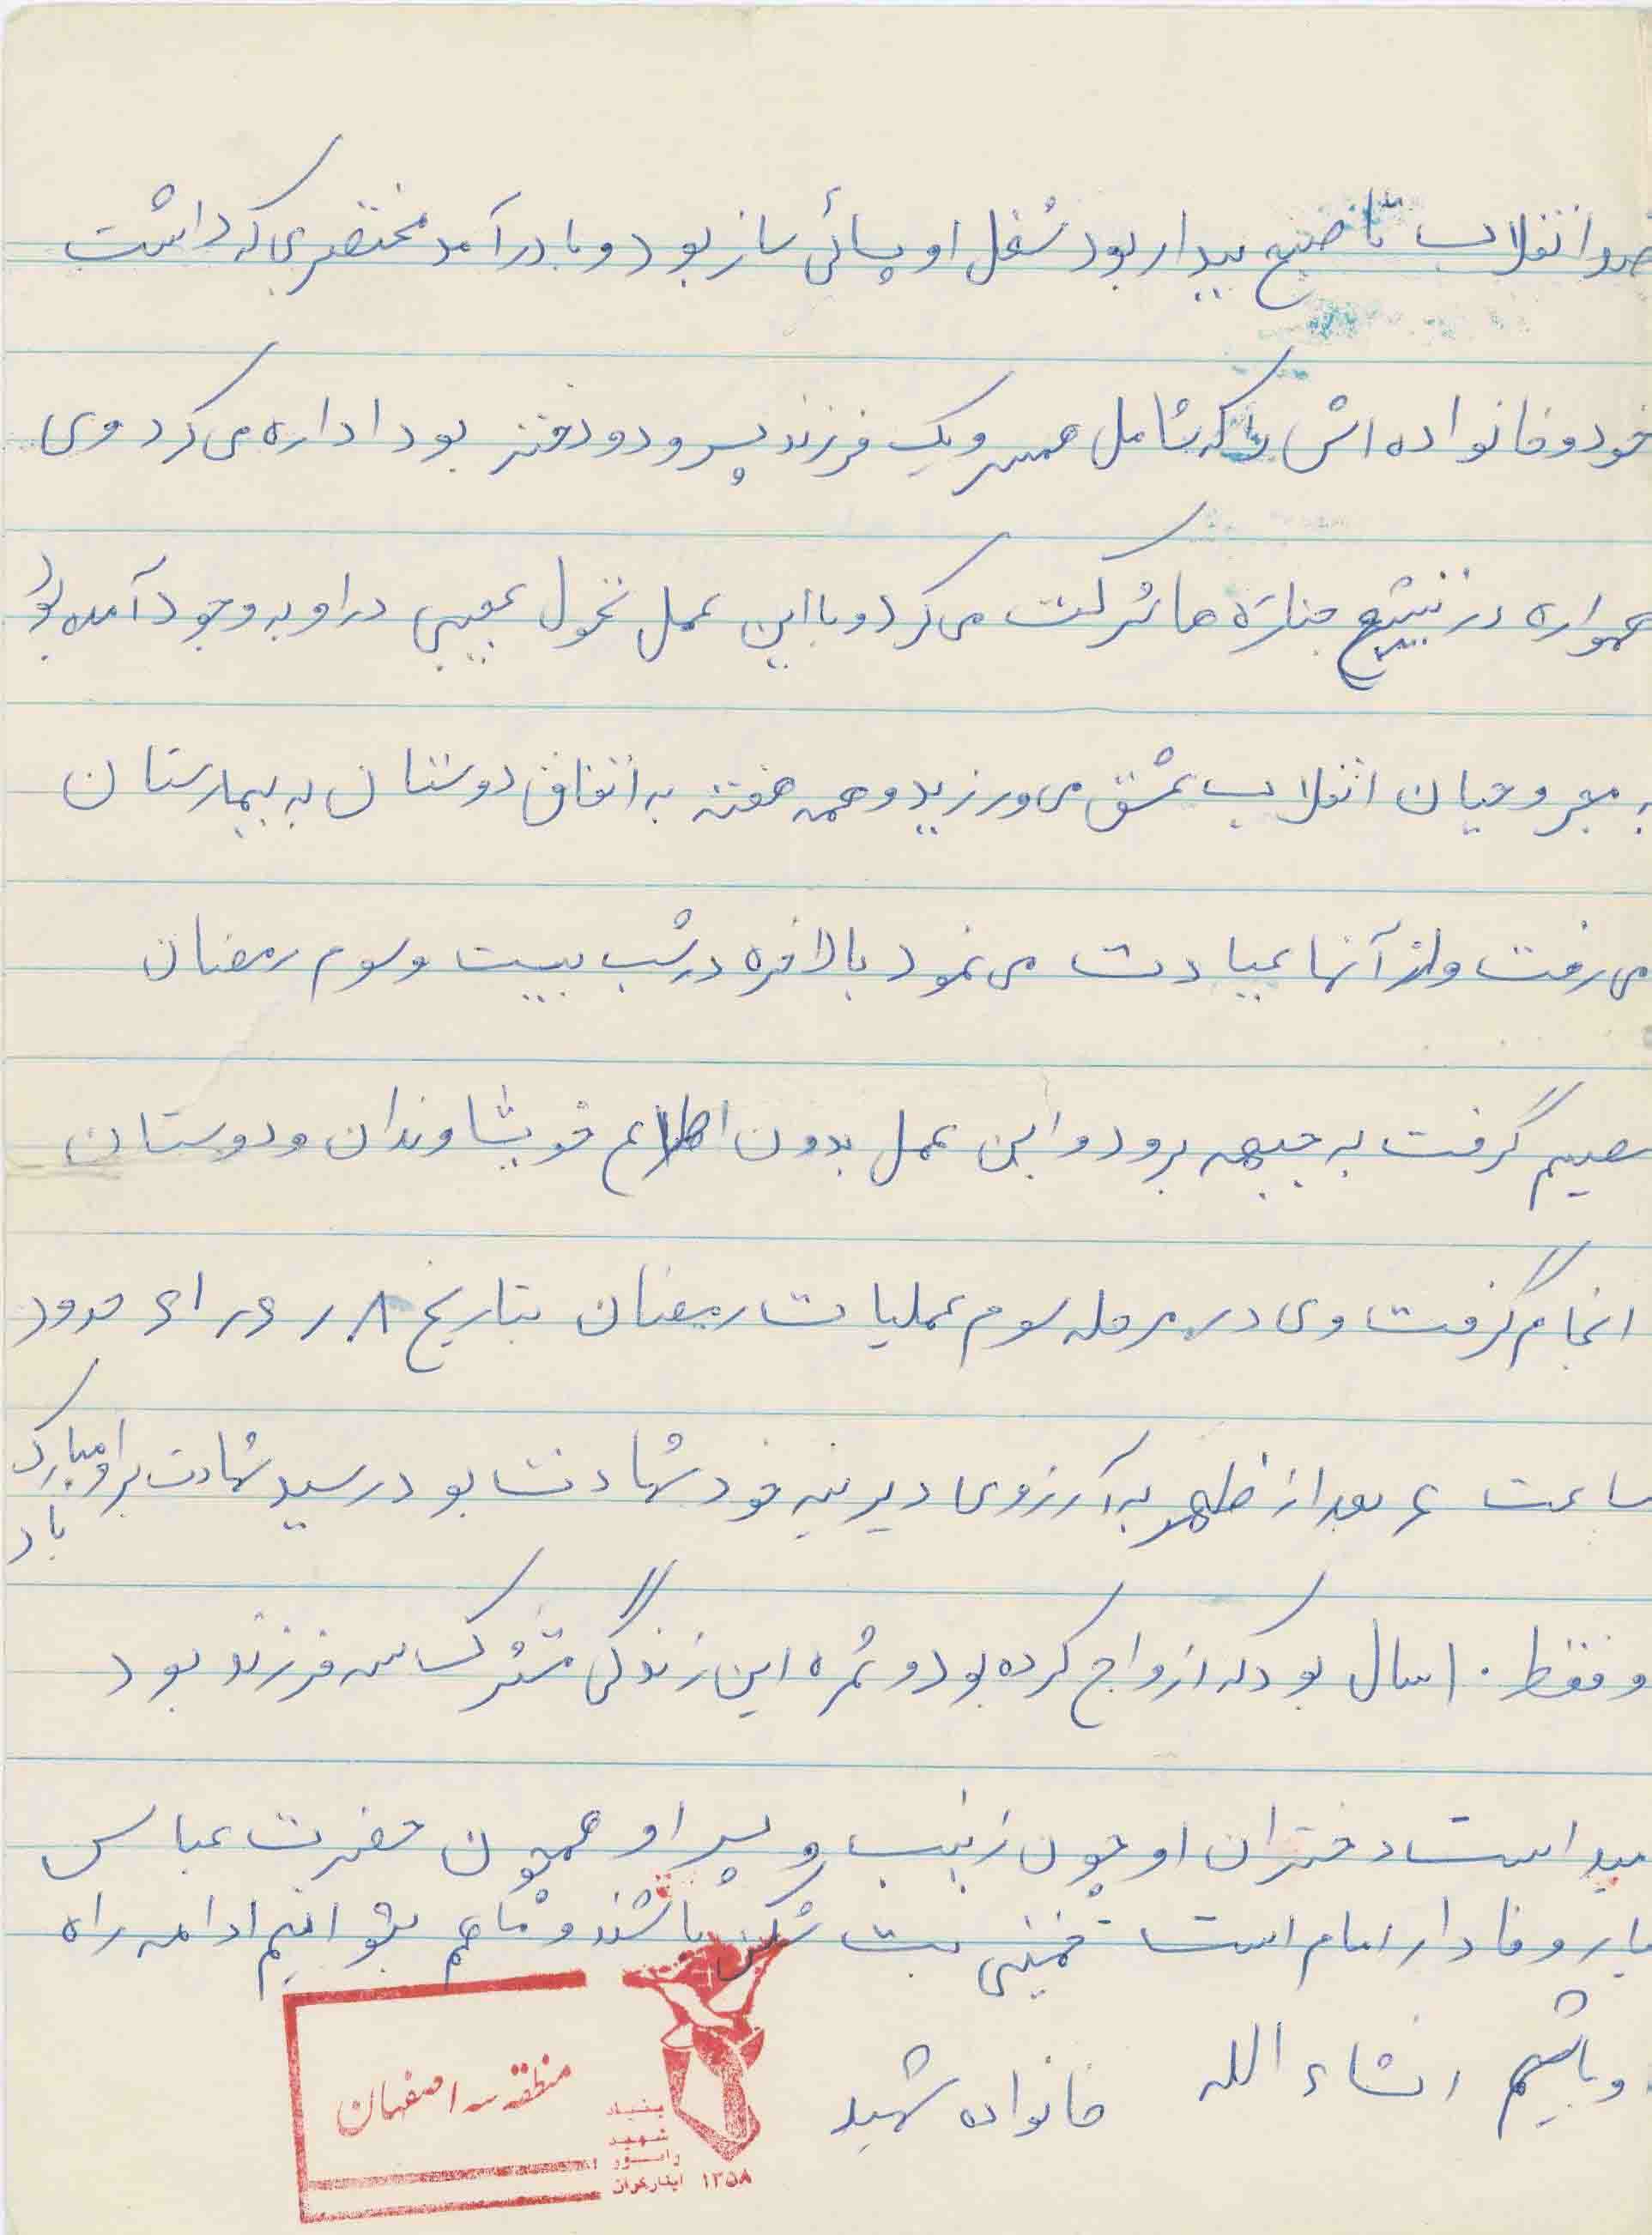 ضد انقلاب تا صبح بیدار بود شغل او پسائی ساز بود و با درآمد مختصری که داشت
خود و خانواده اش را که شامل همسر و یک فرزند پسر و دو دختر بود اداره می کرد وی
همواره در تشیع جنازه ها شرکت می کرد و با این عمل تحول عجیبی در او به وجود آمده بود
به مجروحیان انقلاب عشق می ورزید و همه هفته به اتفاق دوستان به بیمارستان
می رفت و از آنها عیادت می نمود بالاخره در شب بیست و سوم رمضان
تصمیم گرفت به جبهه برود و این عمل بدون اطلاع خویشاوندان و دوستان
انجام گرفت وی در مرحله سوم عملیات رمضان بتاریخ حدود
ساعت ۴ بعد از ظهر به آرزوی دیرینه خود شهادت بود رسید شهادت بر او مبارک
باد
و فقط ۱۰ سال بود که ازدواج کرده بود و ثمره این زندگی مشترک سه فرزند بود
امید است دختران او چون زینب و پسر او همچون حضرت عباس
یار وفادار امام است خمینی بت شکن باشند و ما هم بتوانیم ادامه راه
او باشیم انشاء الله خانواده شهید
منطقه سه اصفهان
بنیاد
شهید
و امور
ایثارگران ۱۳۵۸